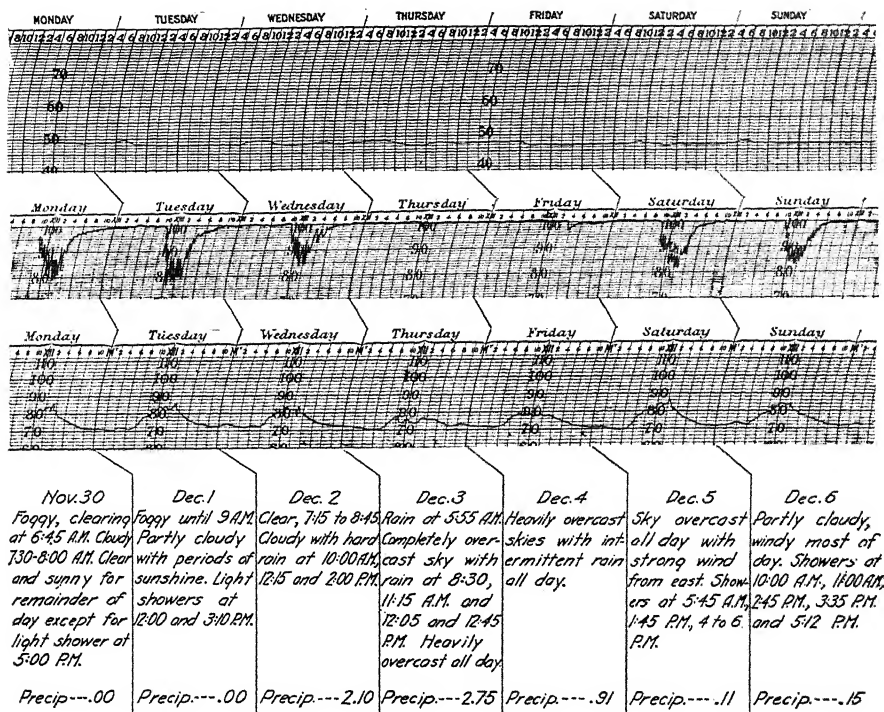 MONDAY TUESDAY WEDNESDAY THURSDAY FRIDAY SATURDAY SUNDAY
70
70
60
60
50
50
40
40
Monday Tuesday Wednesday Thursday Friday Saturday Sunday
100 100 100 100 100 100 100
90 90 90 90 90 90 90
80 80 80 80 80 80 80
Monday Tuesday Wednesday Thursday Friday Saturday Sunday
110 110 110 110 110 110 110
100 100 100 100 100 100 100
90 90 90 90 90 90 90
80 80 80 80 80 80 80
70 70 70 70 70 70 70
Nov. 30
Foggy, clearing
at 6:45 A.M. Cloudy
7:30-8:00 A.M. Clear
and sunny for
remainder of
day except for
light shower at
5:00 P.M.
Precip.---.00
Dec. 1
Foggy until 9 A.M.
Partly cloudy
with periods of
sunshine. Light
showers at
12:00 and 3:10 P.M.
Precip.---.00
Dec. 2
Clear, 7:15 to 8:45
Cloudy with hard
rain at 10:00 A.M.,
12:15 and 2:00 P.M.
Precip.---2.10
Dec. 3
Rain at 5:55 A.M.
Completely over-
cast sky with
rain at 8:30,
11:15 A.M. and
12:05 and 12:45
P.M. Heavily
overcast all day
Precip.---2.75
Dec. 4
Heavily overcast
skies with int-
ermittent rain
all day.
Precip.---.91
Dec. 5
Sky overcast
all day with
strong wind
from east. Show-
ers at 5:45 A.M.,
1:45 P.M., 4 to 6
P.M.
Precip.---.11
Dec. 6
Partly cloudy,
windy most of
day. Showers at
10:00 A.M., 11:00 A.M.,
2:45 P.M., 3:35 P.M.
and 5:12 P.M.
Precip.---.15